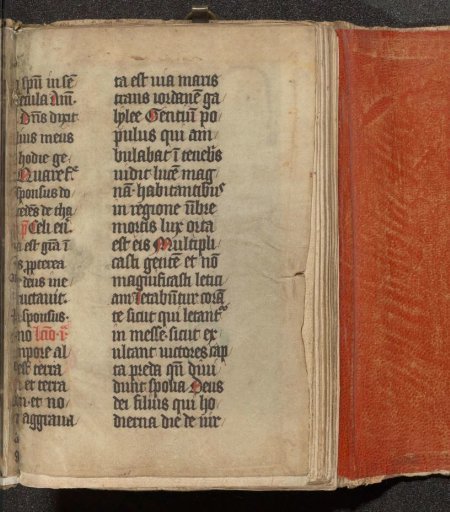 spū in sē
cula Am̄.
Dn̄s dixit
lius meus
hodie ge
Quare f.
sponsus do
cedēs de tha
Celi en̄.
a est gr̄a ī
s ppterea
deus me
uctauit.
sponsus.
no lc̄io i.
mpore al
terra
et terra
on et no
aggraua
ta est uia maris
trans iordanē ga
lylee Gentiū po
pulus qui am
bulabat ī tenebs
uidit lucē mag
nā habitantibus
in regione ūbre
mortis lux orta
est eis Multipli
casti gentē et nō
magnificasti letici
am letabūtur corā
te sicut qui letant
in messe sicut ex
ultant uictores cap
ta preda qn̄ diui
dunt spolia Deus
dei filius qui ho
dierna die de uir